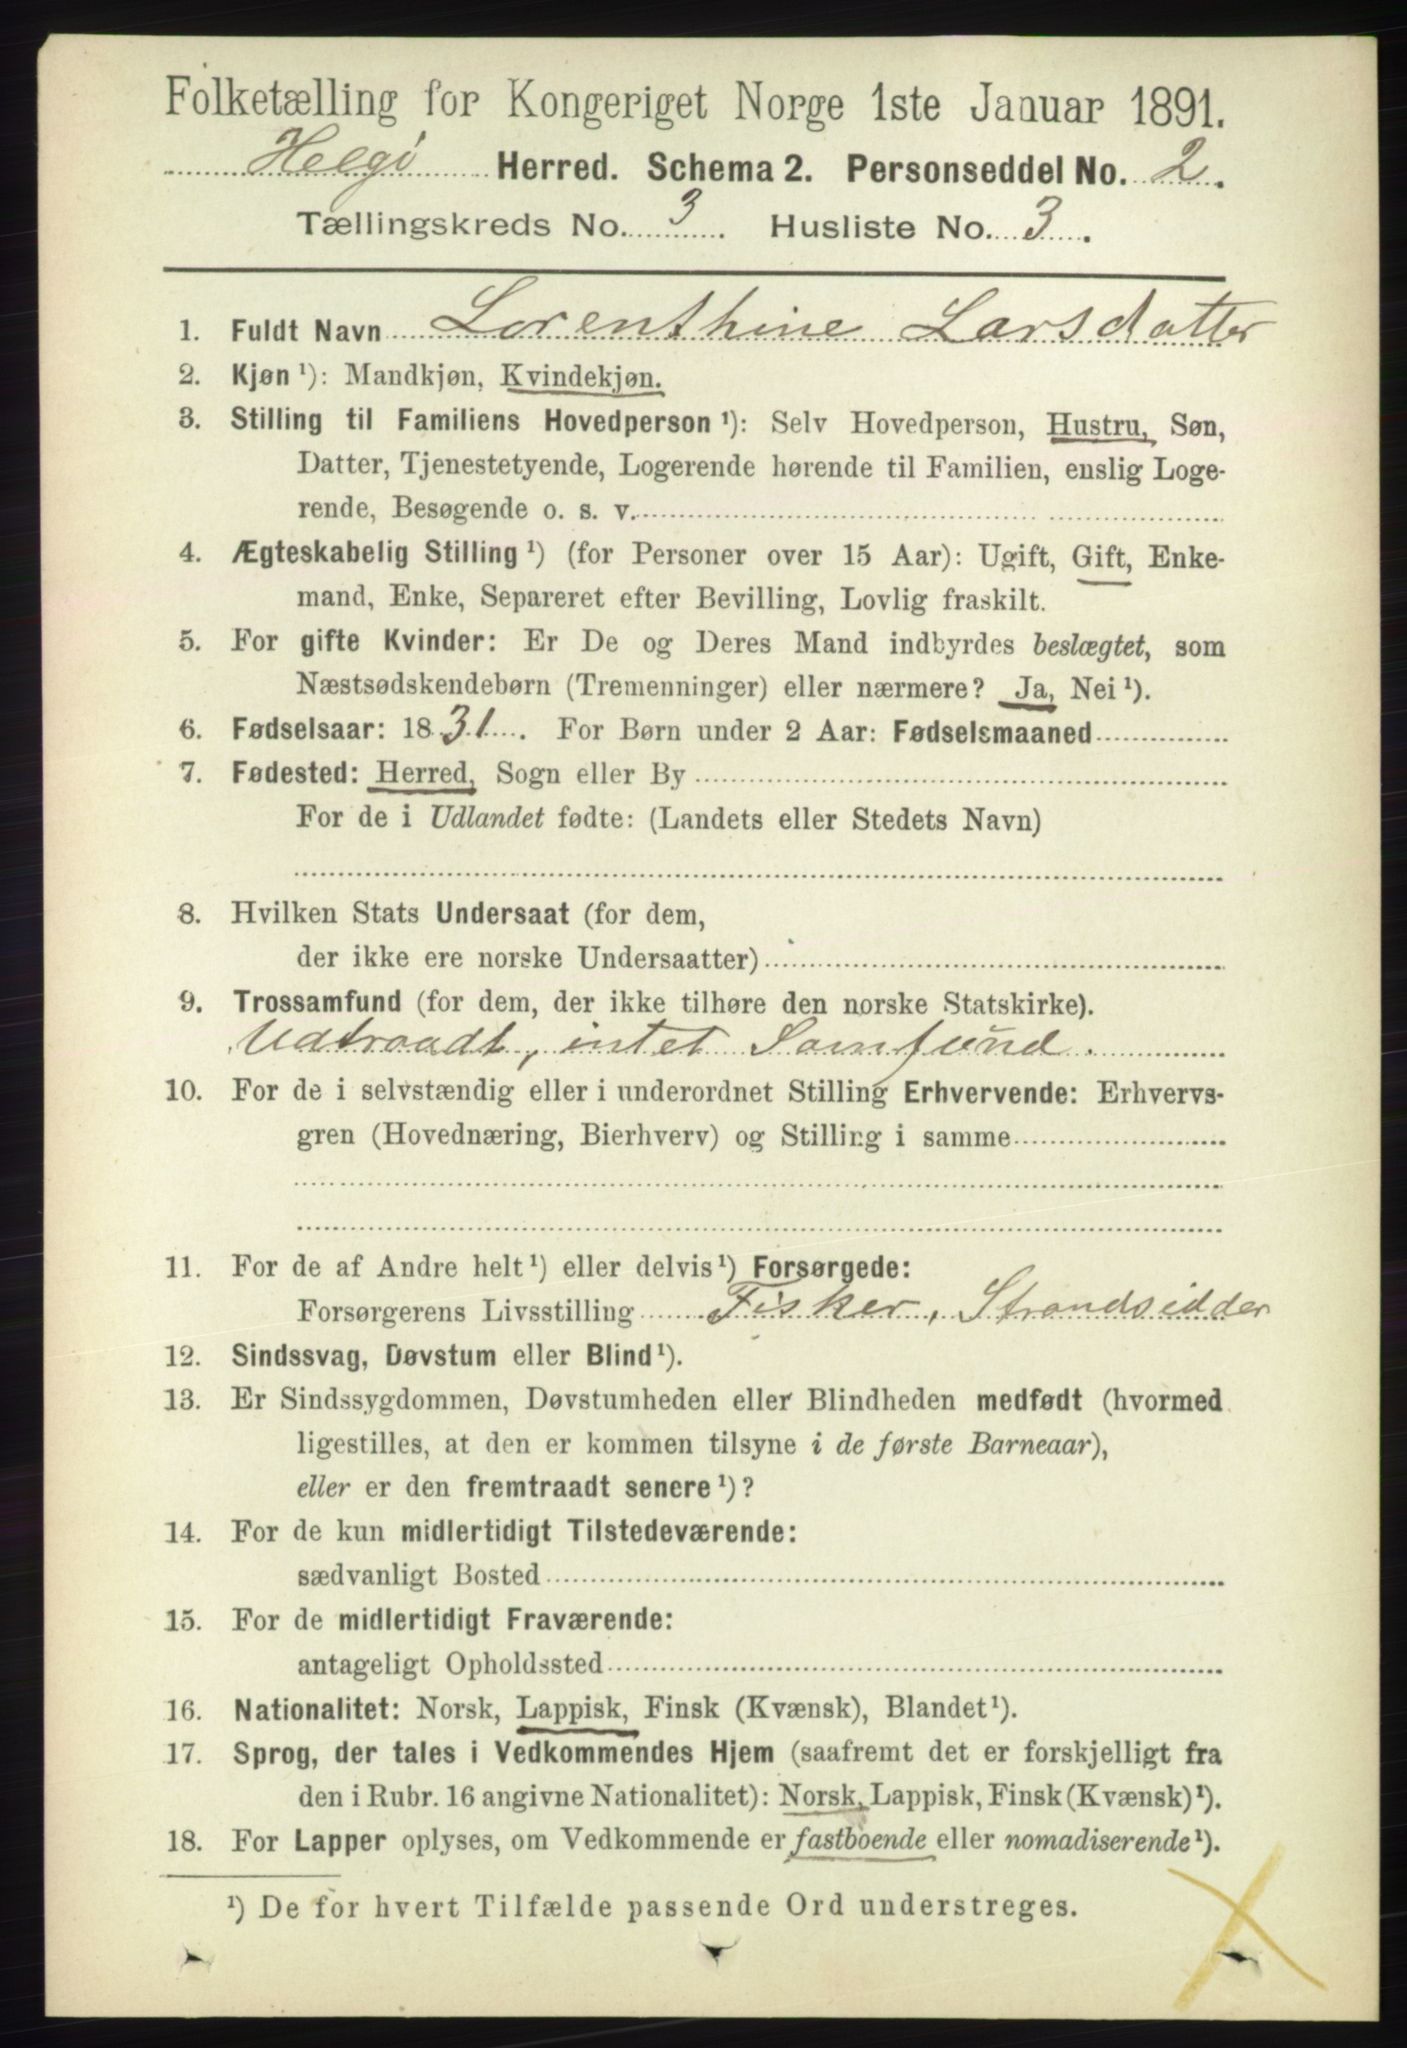 Folketælling for Kongeriget Norge 1ste Januar 1891.
Helgø Herred. Schema 2. Personseddel No. 2.
Tællingskreds No. 3. Husliste No. 3.
1. Fuldt Navn Lorenthine Larsdatter
2. Kjøn ¹): Mandkjøn, Kvindekjøn.
3. Stilling til Familiens Hovedperson ¹): Selv Hovedperson, Hustru, Søn,
Datter, Tjenestetyende, Logerende hørende til Familien, enslig Loge-
rende, Besøgende o. s. v.
4. Ægteskabelig Stilling ¹) (for Personer over 15 Aar): Ugift, Gift, Enke-
mand, Enke, Separeret efter Bevilling, Lovlig fraskilt.
5. For gifte Kvinder: Er De og Deres Mand indbyrdes beslægtet, som
Næstsødskendebørn (Tremenninger) eller nærmere? Ja, Nei ¹).
6. Fødselsaar: 1831. For Børn under 2 Aar: Fødselsmaaned
7. Fødested: Herred, Sogn eller By
For de i Udlandet fødte: (Landets eller Stedets Navn)
8. Hvilken Stats Undersaat (for dem,
der ikke ere norske Undersaatter)
9. Trossamfund (for dem, der ikke tilhøre den norske Statskirke).
Udtraadt, intet Samfund.
10. For de i selvstændig eller i underordnet Stilling Erhvervende: Erhvervs-
gren (Hovednæring, Bierhverv) og Stilling i samme
11. For de af Andre helt ¹) eller delvis ¹) Forsørgede:
Forsørgerens Livsstilling Fisker, Strandsidder
12. Sindssvag, Døvstum eller Blind ¹).
13. Er Sindssygdommen, Døvstumheden eller Blindheden medfødt (hvormed
ligestilles, at den er kommen tilsyne i de første Barneaar),
eller er den fremtraadt senere ¹)?
14. For de kun midlertidigt Tilstedeværende:
sædvanligt Bosted
15. For de midlertidigt Fraværende:
antageligt Opholdssted
16. Nationalitet: Norsk, Lappisk, Finsk (Kvænsk), Blandet ¹).
17. Sprog, der tales i Vedkommendes Hjem (saafremt det er forskjelligt fra
den i Rubr. 16 angivne Nationalitet): Norsk, Lappisk, Finsk (Kvænsk) ¹).
18. For Lapper oplyses, om Vedkommende er fastboende eller nomadiserende ¹).
¹) De for hvert Tilfælde passende Ord understreges.